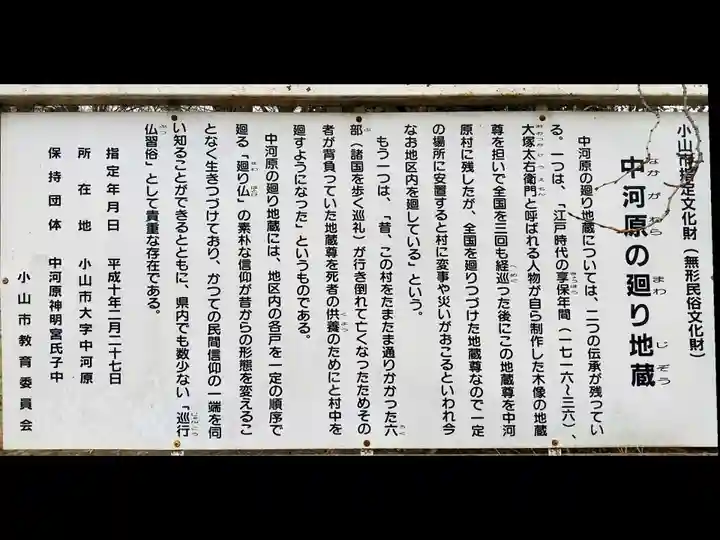 小山市指定文化財（無形民俗文化財）
中河原の廻り地蔵
なかがわら まわ じぞう
中河原の廻り地蔵については、二つの伝承が残ってい
る。一つは、「江戸時代の享保年間（一七一六～三六）、
大塚太右衛門と呼ばれる人物が自ら制作した木像の地蔵
尊を担いで全国を三回も経巡った後にこの地蔵尊を中河
原村に残したが、全国を廻りつづけた地蔵尊なので一定
の場所に安置すると村に変事や災いがおこるといわれ今
なお地区内を廻している」という。
もう一つは、「昔、この村をたまたま通りかかった六
部（諸国を歩く巡礼）が行き倒れて亡くなったためその
者が背負っていた地蔵尊を死者の供養のためにと村中を
廻すようになった」というものである。
中河原の廻り地蔵には、地区内の各戸を一定の順序で
廻る「廻り仏」の素朴な信仰が昔からの形態を変えるこ
となく生きつづけており、かつての民間信仰の一端を伺
い知ることができるとともに、県内でも数少ない「巡行
仏習俗」として貴重な存在である。
指定年月日 平成十年二月二十七日
所在地 小山市大字中河原
保持団体 中河原神明宮氏子中
小山市教育委員会